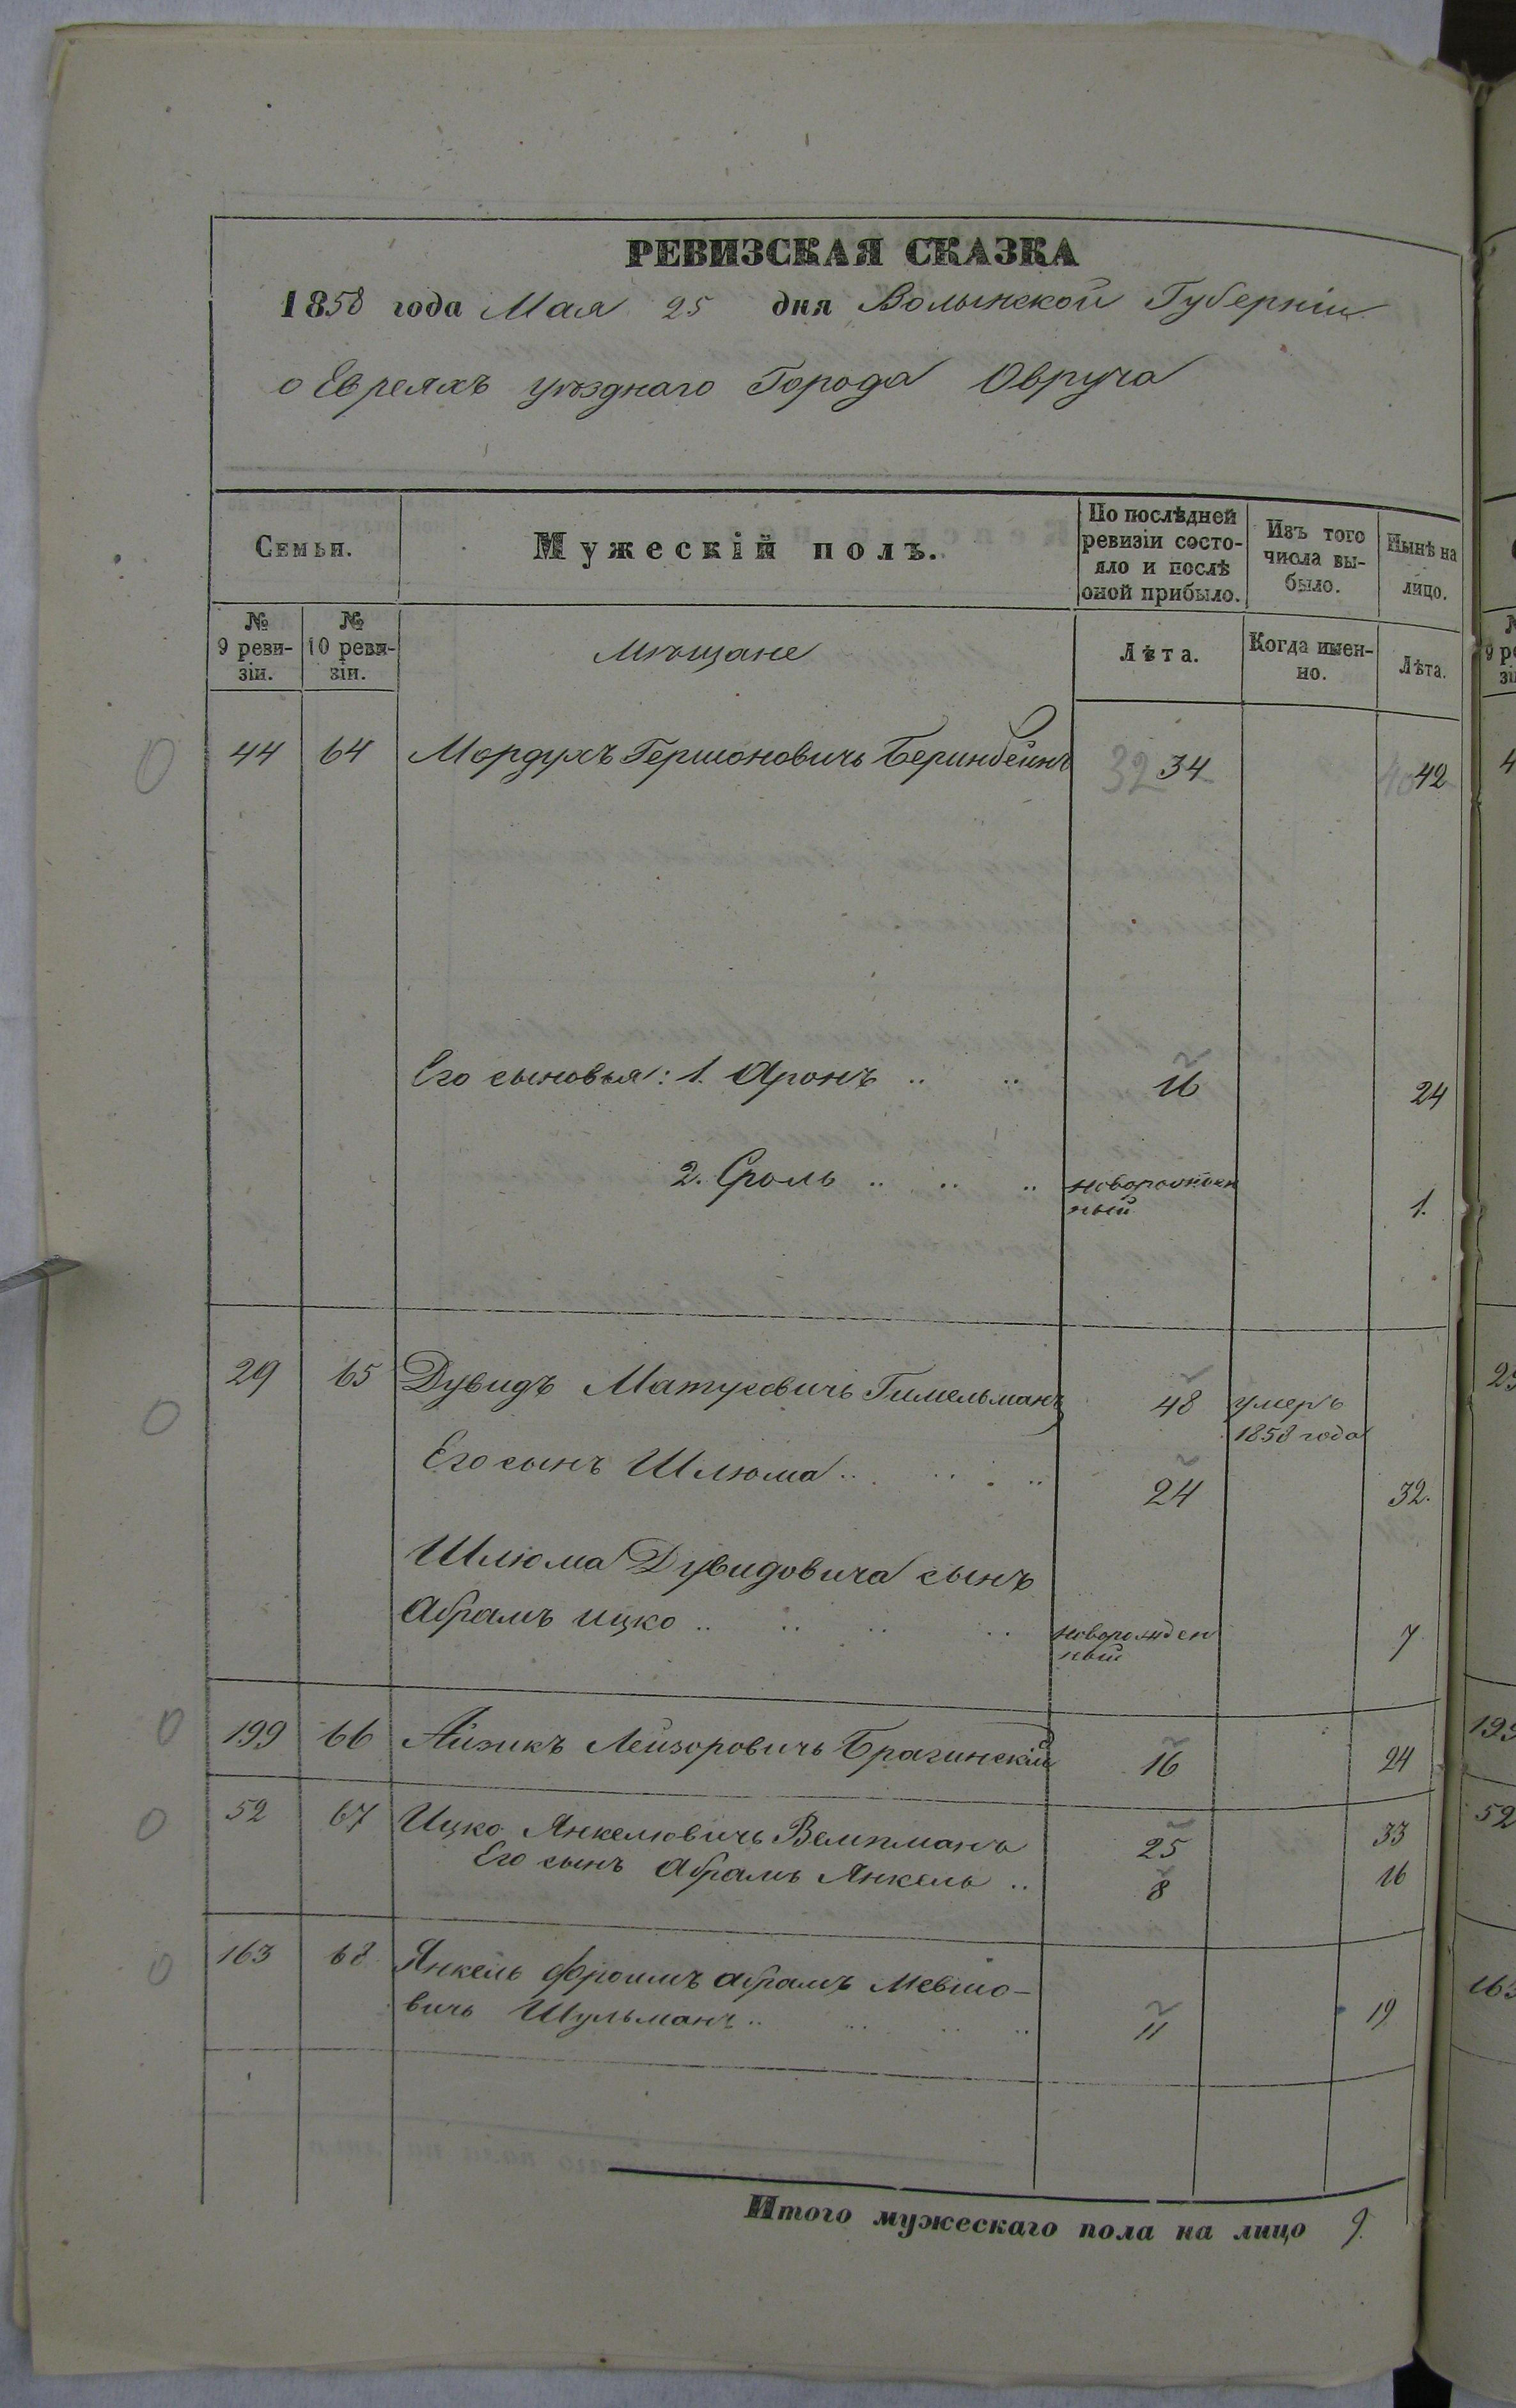 РЕВИЗСКАЯ СКАЗКА
1858 года Мая 25 дня Волынской Губерніи
о Евреяхъ уѣзднаго Города Овруча
Семьи.
Мужескій полъ.
По послѣдней ревизіи состо-
яло и послѣ оной прибыло.
Изъ того числа вы-
было.
Нынѣ на лицо.
№ 9 реви-
зіи.
№ 10 реви-
зіи.
Мѣщане
Лѣта.
Когда имен-
но.
Лѣта.
44 64 Мордухъ Гершоновичь Беринбейнъ 32 34 40 42
Его сыновья: 1. Аронъ .. .. 16 24
2. Сроль .. .. .. новорожден
ный 1.
29 65 Дувидъ Матусовичь Гимельманъ 48 умеръ
1858 года
Его сынъ Шлюма .. .. .. 24 32.
Шлюма Дувидовича сынъ
Абрамъ Ицко .. .. .. .. новорожден
ный 7
199 66 Айзикъ Лейзоровичь Брагинскій 16 24
52 67 Ицко Янкелювичь Велтманъ 25 33
Его сынъ Абрамъ Янкель .. 8 16
163 68 Янкель Фроимъ Абрамъ Мевшо-
вичь Шульманъ .. .. .. .. 11 19
Итого мужескаго пола на лицо 9.